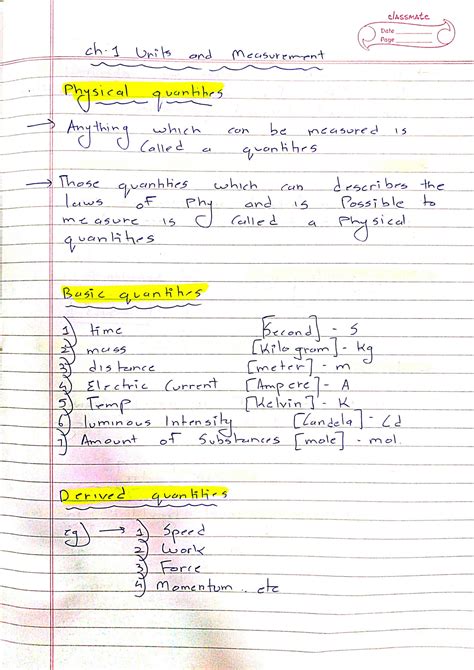 classmate
Date
Page
ch.1 Units and Measurement
Physical quantities
→ Anything which can be measured is
called a quantities
→ Those quantities which can describes the
laws of Phy and is Possible to
measure is called a Physical
quantities
Basic quantities
1) time [Second] - S
2) mass [Kilogram] - Kg
3) distance [meter] - m
4) Electric Current [Ampere] - A
5) Temp [Kelvin] - K
6) luminous Intensity [Candela] - Cd
7) Amount of Substances [mole] - mol.
Derived quantities
eg) → 1) Speed
2) Work
3) Force
4) Momentum .. etc